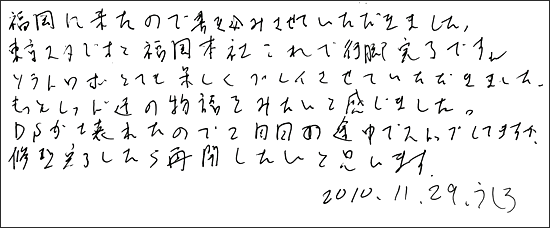 福岡に来たので書き込みさせていただきました。
東京スタジオと福岡本社これで行脚完了です。
ソラトロボとても楽しくプレイさせていただきました。
もっとレッド達の物語をみたいと感じました。
DSが壊れたので2周目の途中でストップしてますが、
修理完了したら再開したいと思います。
2010.11.29.うしろ